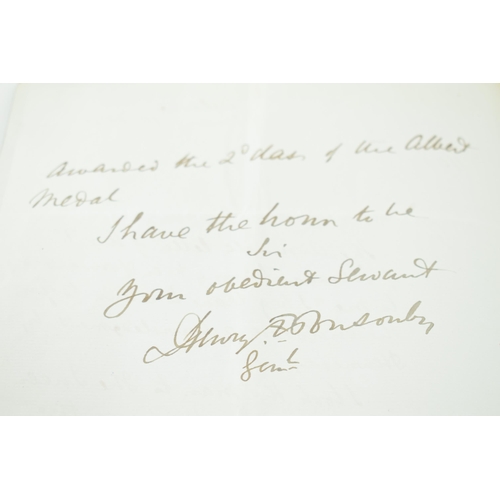 awarded the 2d class of the Albert
Medal
I have the honour to be
Sir
Your obedient Servant
Henry F Ponsonby
Genl